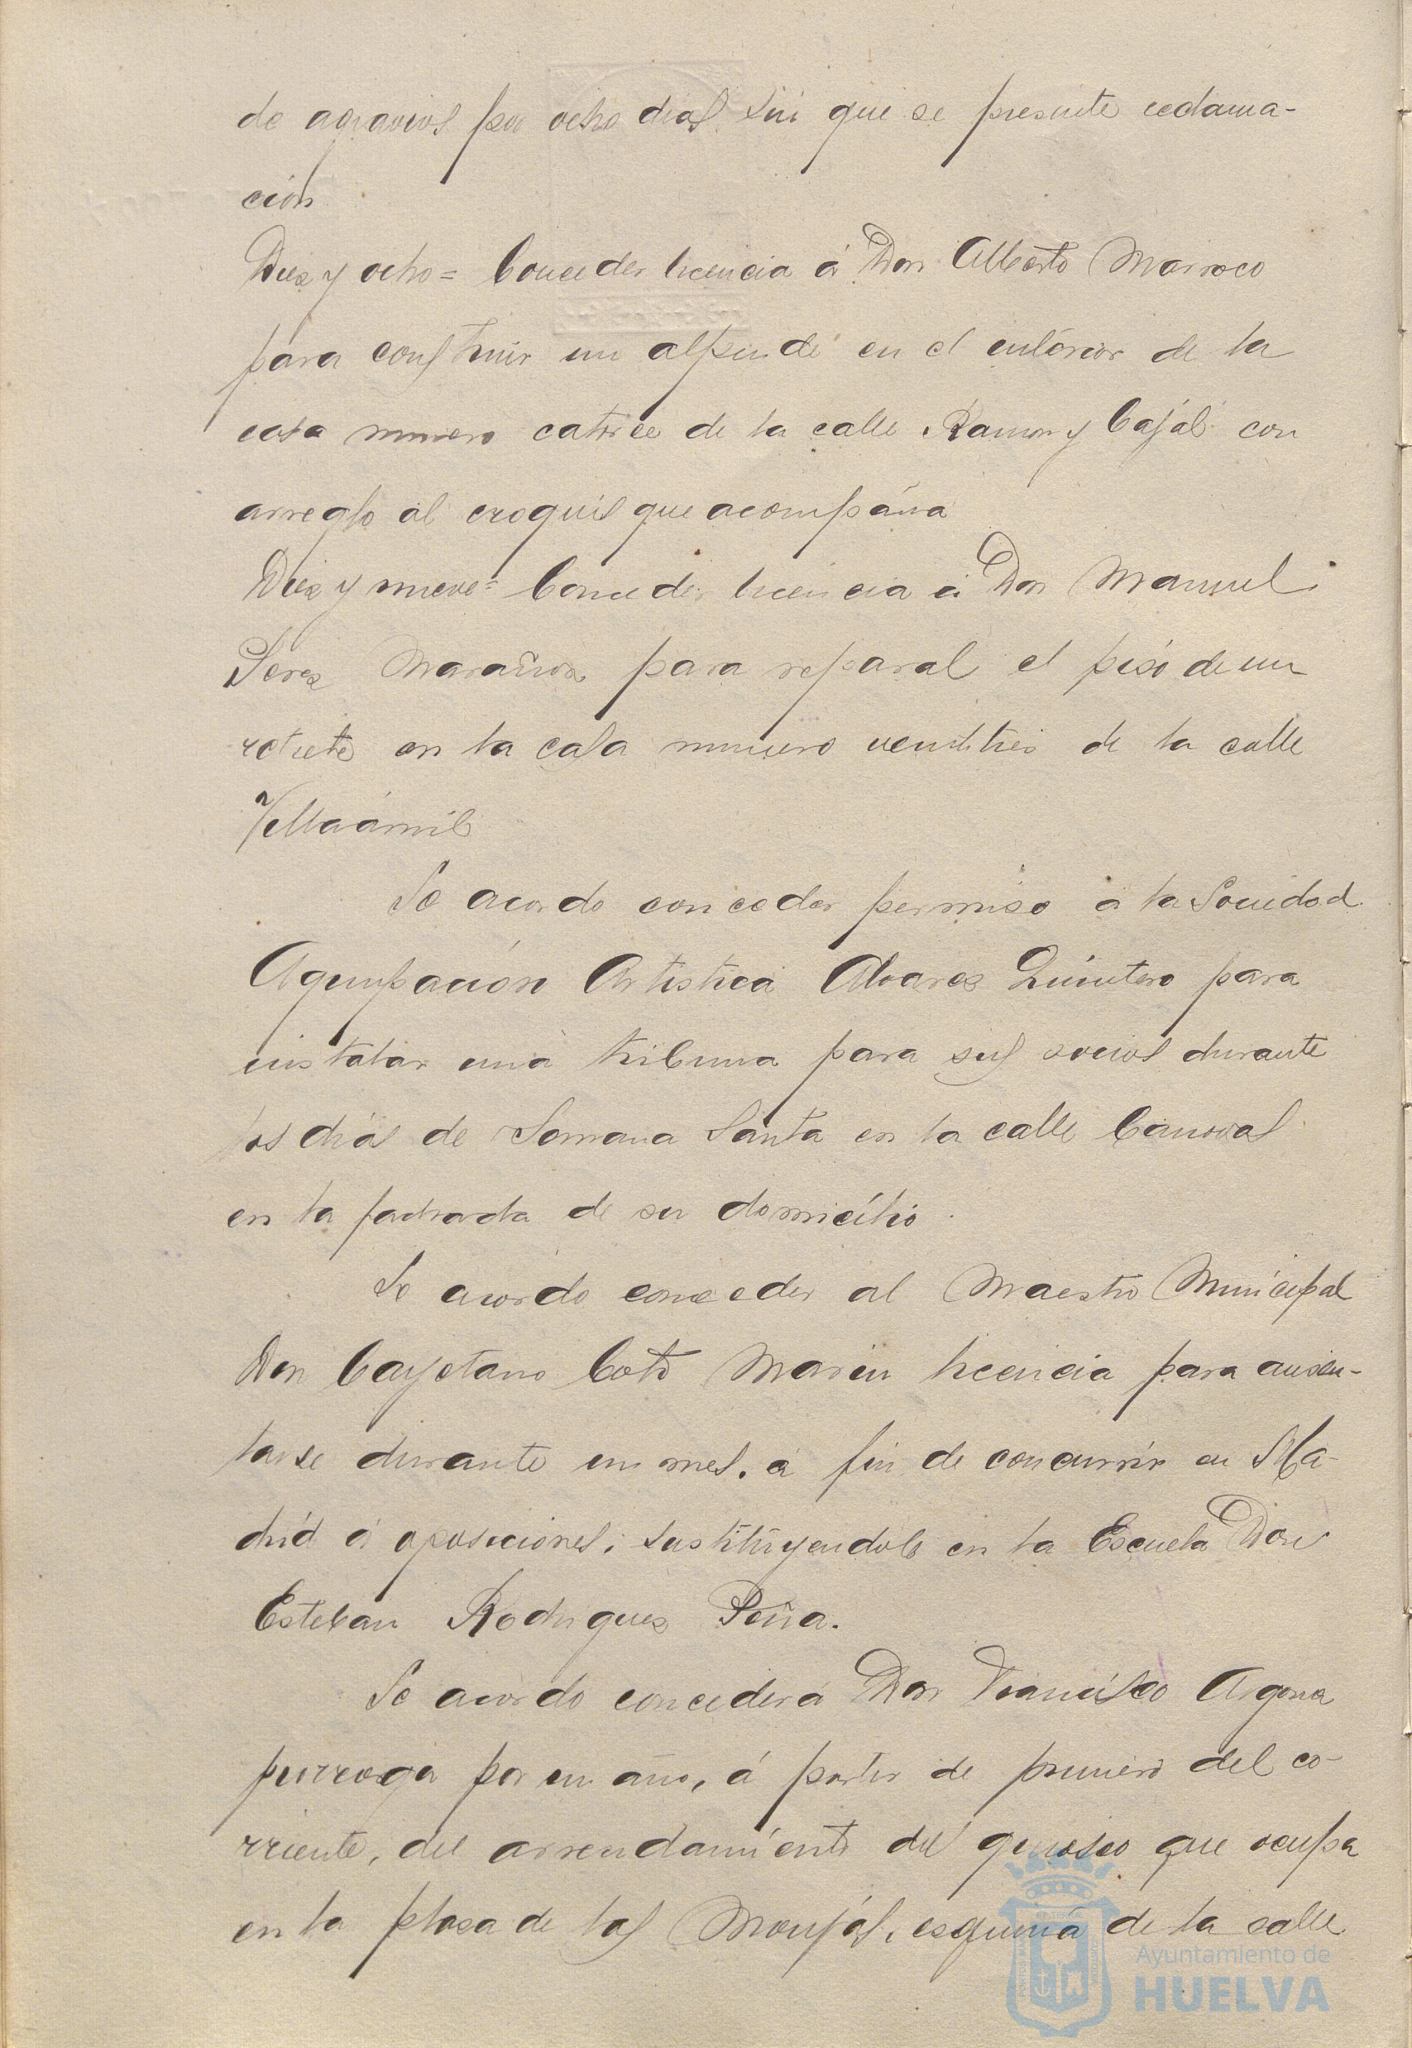 de agravios por ocho dias sin que se presente reclama-
ción
Diez y ocho = Conceder licencia á Don Alberto Morroco
para construir un alpende en el interior de la
casa numero catorce de la calle Ramon y Cajal con
arreglo al croquis que acompaña
Diez y nueve = Conceder licencia á Don Manuel
Perez Marañon para reparar el piso de un
retrete en la casa numero veintitres de la calle
Villaamil
Se acordo conceder permiso á la Sociedad
Agrupación Artistica Alvares Quintero para
instalar una tribuna para sus socios durante
los dias de Semana Santa en la calle Canovas
en la fachada de su domicilio.
Se acordo conceder al Maestro Municipal
Don Cayetano Coto Marin licencia para ausen-
tarse durante un mes, á fin de concurrir en Ma-
drid á oposiciones; sustituyendole en la Escuela Don
Esteban Rodrigues Peña.
Se acordo conceder á Don Francisco Argona
prorroga por un año, á partir de primero del co-
rriente, del arrendamiento del que ocupa
en la plasa de las Monjas, esquina de la calle
Ayuntamiento de
HUELVA